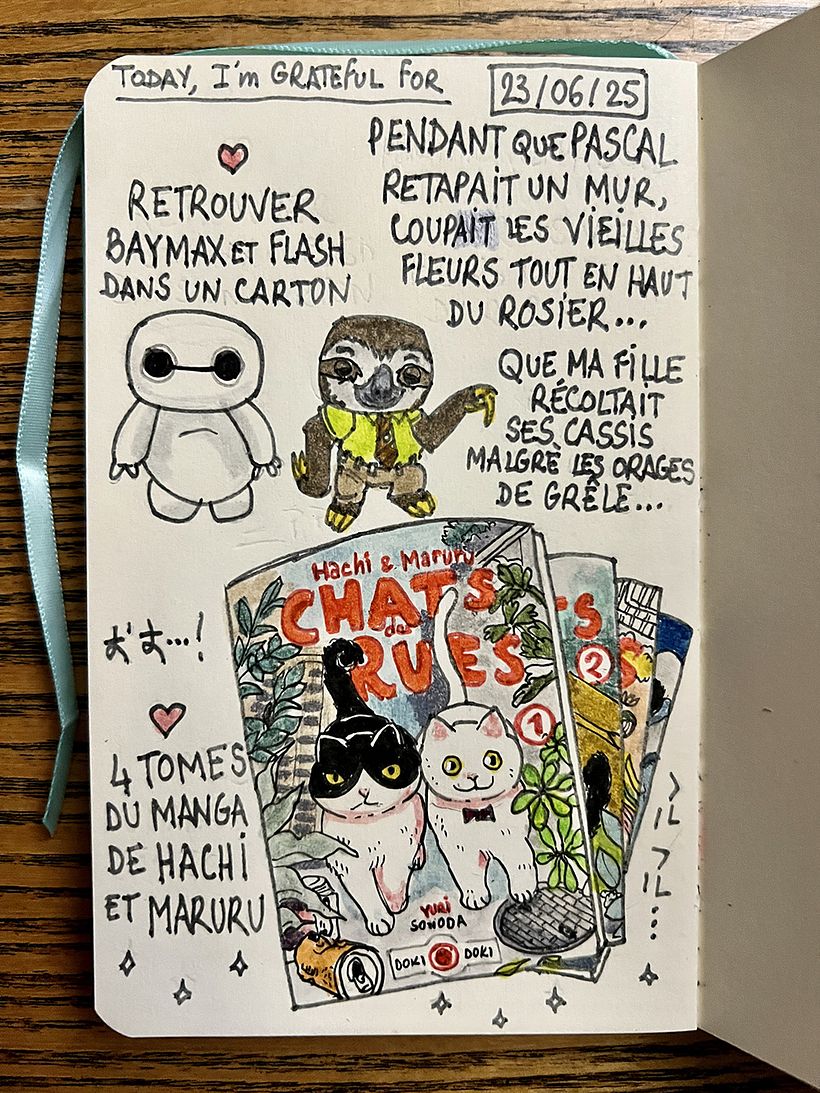 TODAY, I'm GRATEFUL FOR
23/06/25
RETROUVER
BAYMAX ET FLASH
DANS UN CARTON
PENDANT QUE PASCAL
RETAPAIT UN MUR,
COUPAIT LES VIEILLES
FLEURS TOUT EN HAUT
DU ROSIER...
QUE MA FILLE
RÉCOLTAIT
SES CASSIS
MALGRÉ LES ORAGES
DE GRÊLE...
Hachi & Maruru
CHATS
de
RUES
1
YURI
SONODA
DOKI DOKI
TS
2
S
4 TOMES
DU MANGA
DE HACHI
ET MARURU